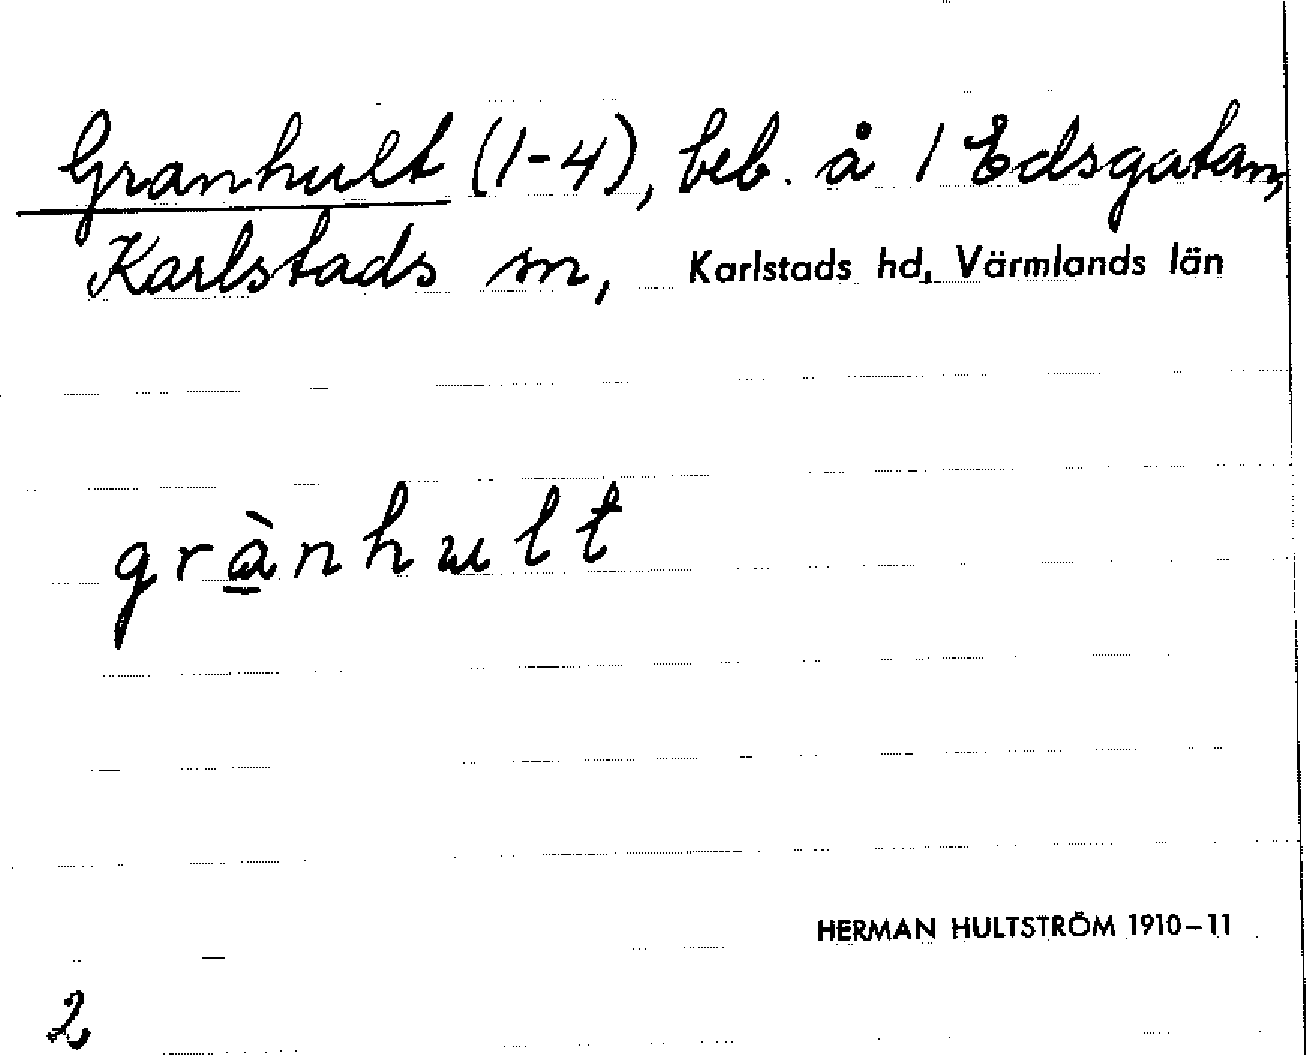 Granhult (1-4), beb. å 1 Edsgatan,
Karlstads sn, Karlstads hd, Värmlands län
grànhult
HERMAN HULTSTRÖM 1910-11
2